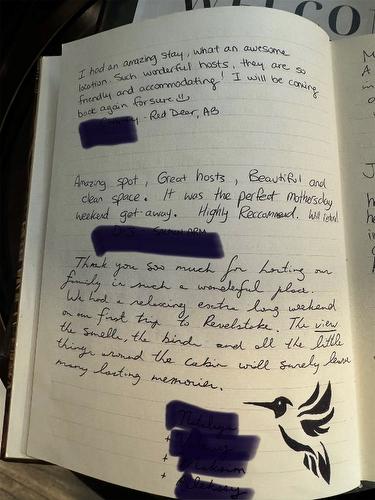 WELCO
I had an amazing stay, what an awesome
location. Such wonderful hosts, they are so
friendly and accommodating! I will be coming
back again for sure
- Red Deer, AB
Amazing spot, Great hosts, Beautiful and
clean space. It was the perfect mothersday
weekend get away. Highly Reccommend. Will return!
Thank you soo much for hosting our
family in such a wonderful place.
We had a relaxing extra long weekend
on our first trip to Revelstoke. The view
the smells, the birds and all the little
things around the cabin will surely leave
many lasting memories.
+
+
+